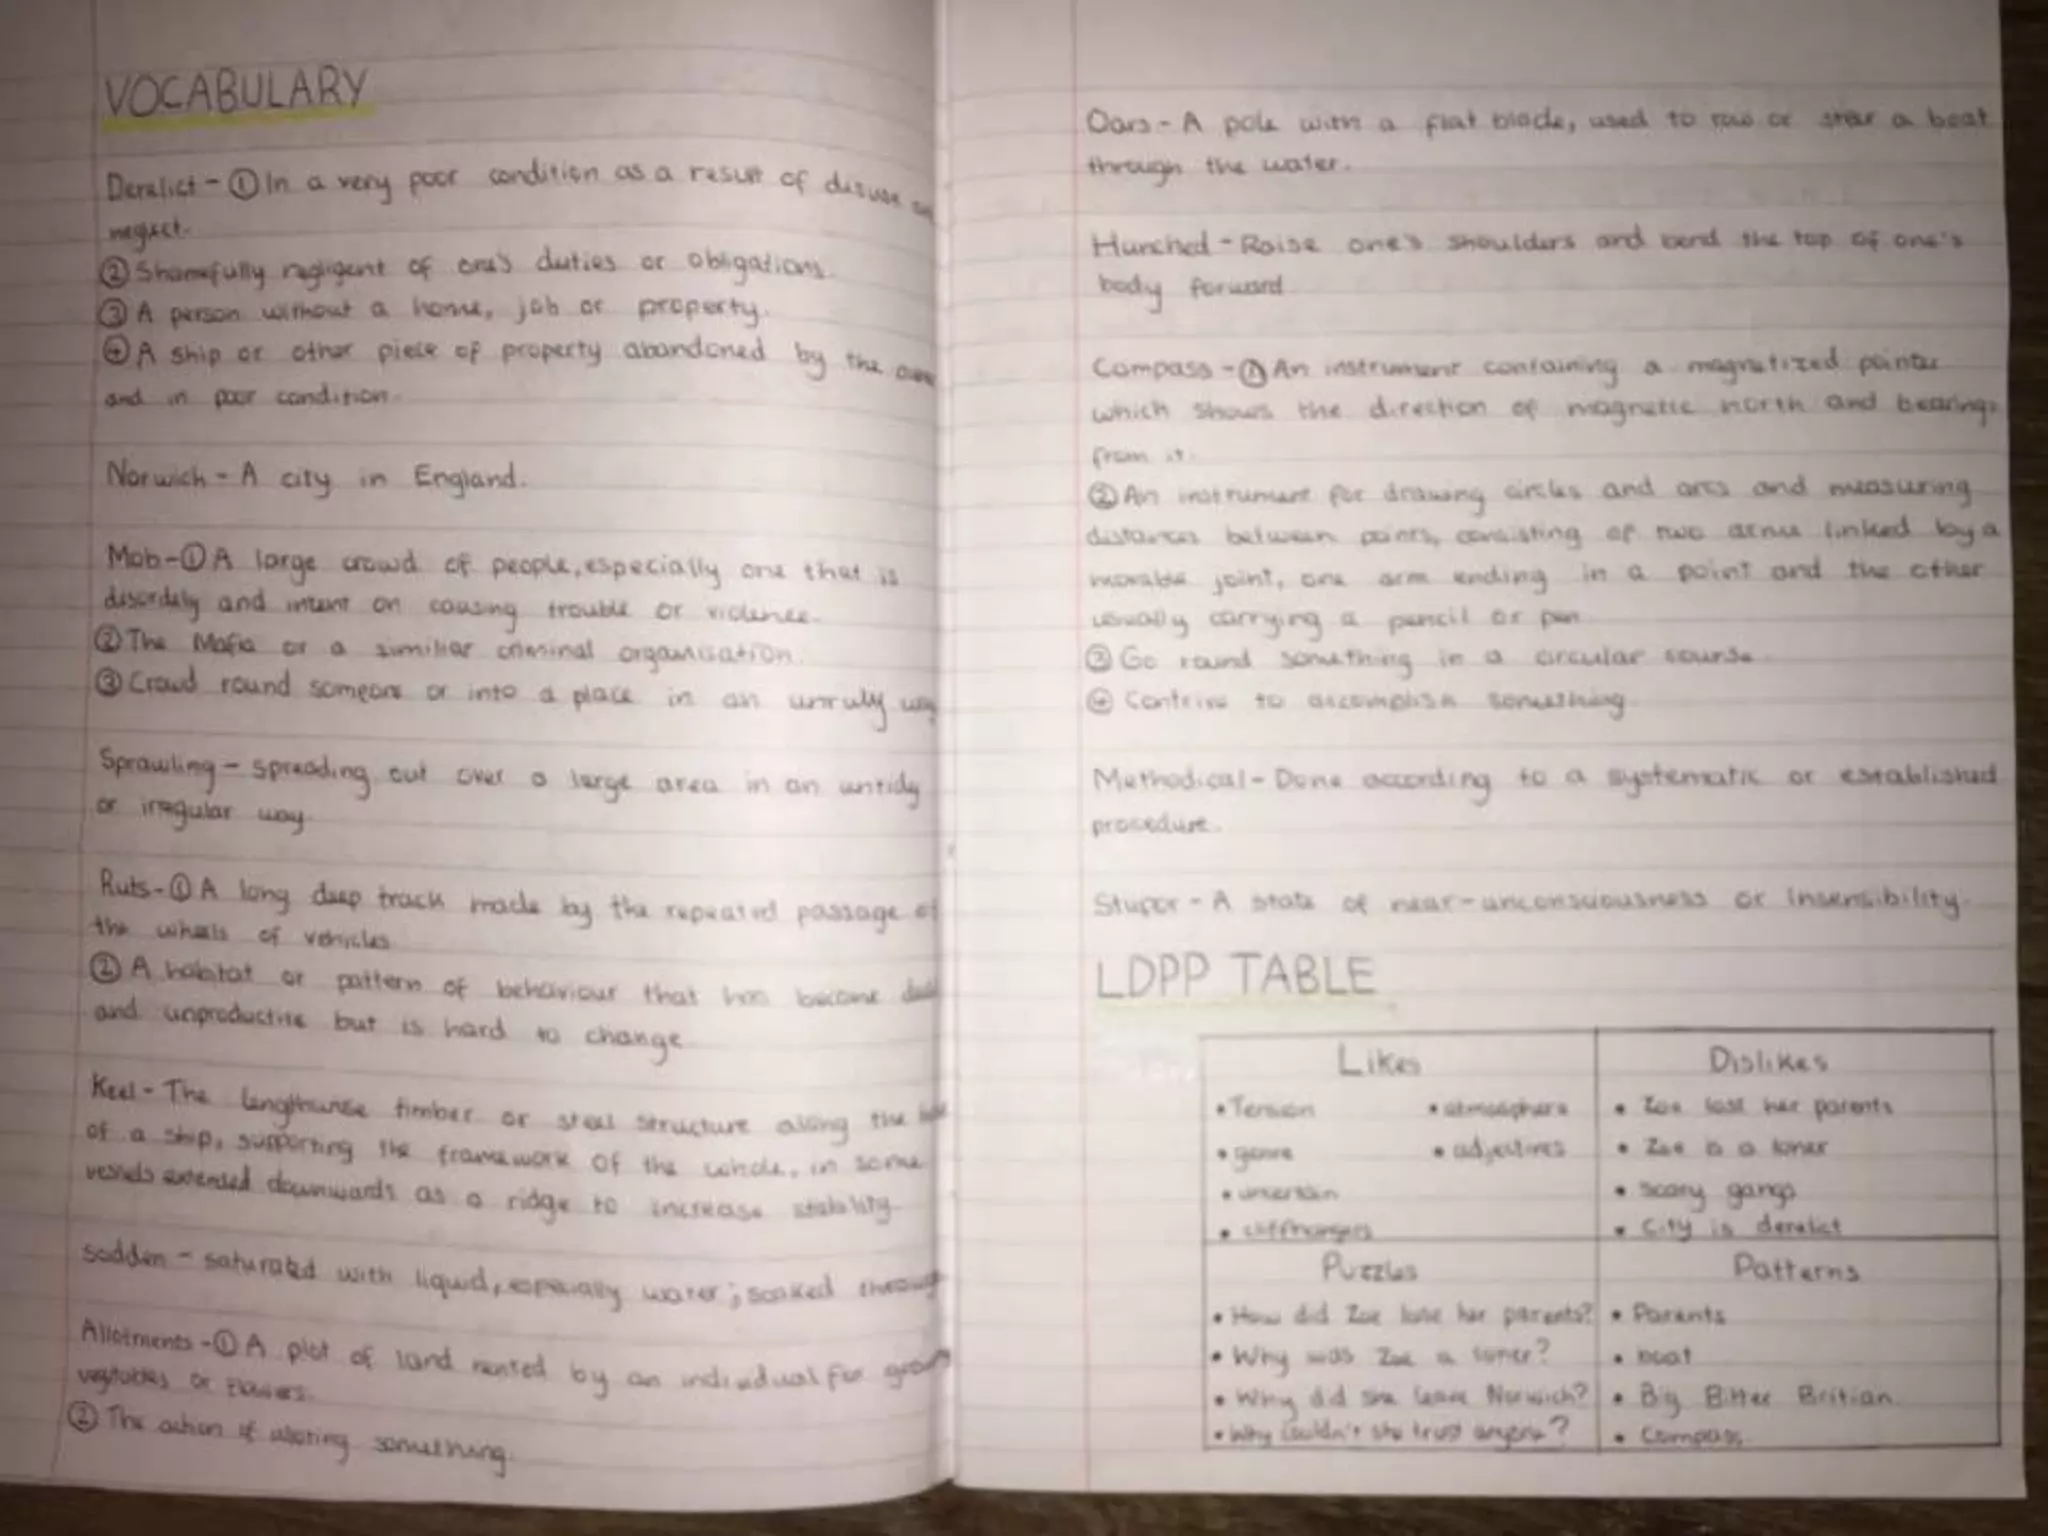 VOCABULARY
Derelict - ① In a very poor condition as a result of disuse
neglect.
② Shamefully negligent of one's duties or obligations.
③ A person without a home, job or property.
④ A ship or other piece of property abandoned by the
and in poor condition.
Norwich - A city in England.
Mob - ① A large crowd of people, especially one that is
disorderly and intent on causing trouble or violence.
② The Mafia or a similiar criminal organisation.
③ Crowd round someone or into a place in an unruly way
Sprawling - spreading out over a large area in an untidy
or irregular way.
Ruts - ① A long deep track made by the repeated passage of
the wheels of vehicles.
② A habitat or pattern of behaviour that has become
and unproductive but is hard to change
Keel - The lengthwise timber or steel structure along the
of a ship, supporting the framework of the whole, in some
vessels extended downwards as a ridge to increase stability.
Sodden - saturated with liquid, especially water; soaked through
Allotments - ① A plot of land rented by an individual for
vegetables or flowers.
② The action of alloting something.
Oars - A pole with a flat blade, used to row or stear a boat
through the water.
Hunched - Raise one's shoulders and bend the top of one's
body forward
Compass - ① An instrument containing a magnetized pointer
which shows the direction of magnetic north and bearings
from it.
② An instrument for drawing circles and arcs and measuring
distances between points, consisting of two arms linked by a
movable joint, one arm ending in a point and the other
usually carrying a pencil or pen
③ Go round something in a circular course
④ Contrive to accomplish something.
Methodical - Done according to a systematic or established
procedure.
Stupor - A state of near-unconsciousness or insensibility.
LDPP TABLE
Likes
• Tension • atmosphere
• genre • adjectives
• uncertain
• cliffhangers
Dislikes
• Zoe lost her parents
• Zoe is a loner
• scary gangs
• City is derelict
Puzzles
• How did Zoe lose her parents?
• Why was Zoe a loner?
• Why did she leave Norwich?
• Why couldn't she trust anyone?
Patterns
• Parents
• boat
• Big Bitter Britian
• Compass